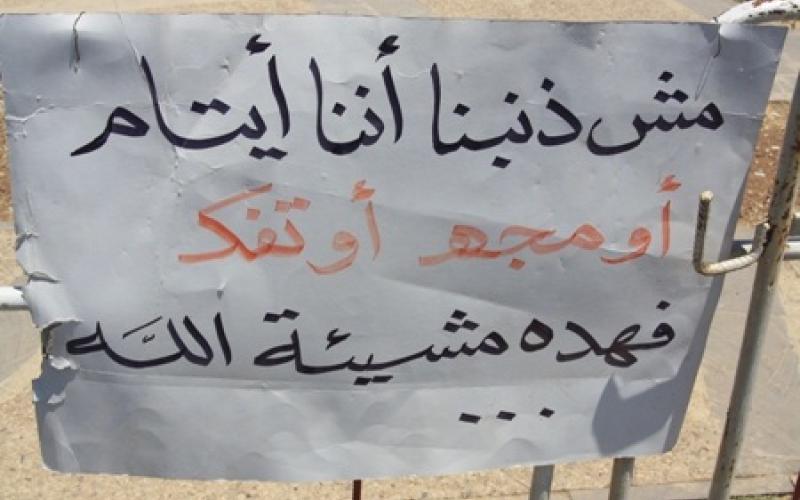 مش ذنبنا أننا أيتام
أو مجهـ أو تفكـ
فهذه مشيئة الله
...